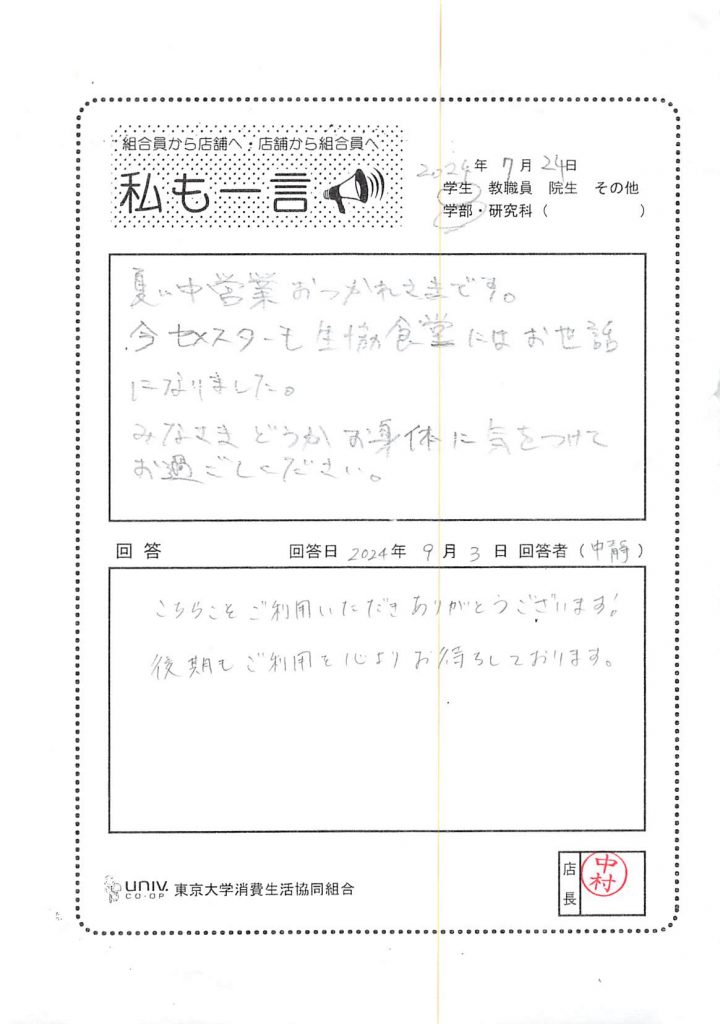 組合員から店舗へ・店舗から組合員へ
私も一言
2024年 7月 24日
学生 教職員 院生 その他
学部・研究科（ ）
夏い中営業おつかれさまです。
今セメスターも生協食堂にはお世話
になりました。
みなさまどうかお身体に気をつけて
お過ごしください。
回答 回答日 2024年 9月 3日 回答者（中静）
こちらこそご利用いただきありがとうございます!
後期もご利用を心よりお待ちしております。
UNIV. CO-OP 東京大学消費生活協同組合
店長 中村